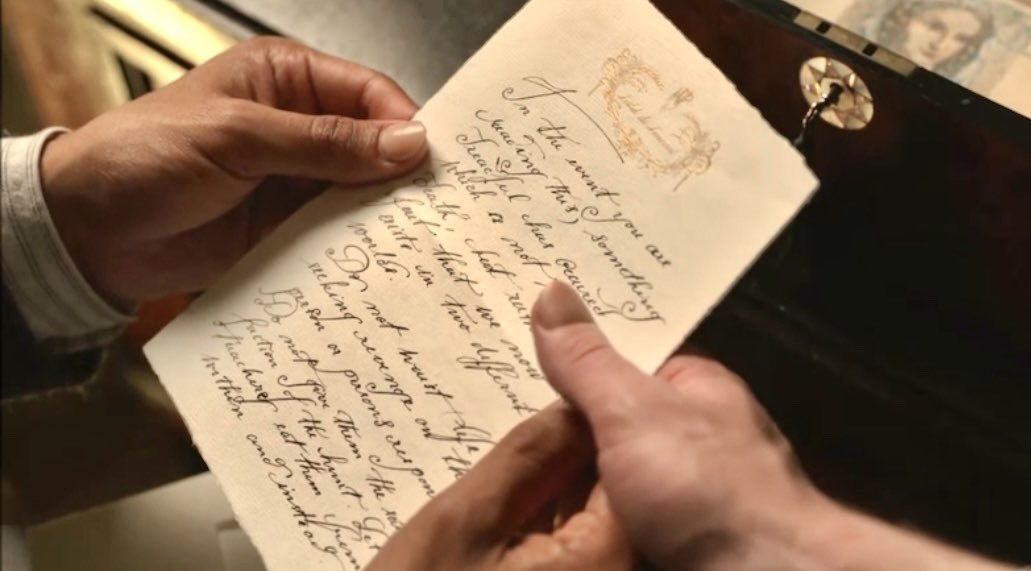 In the event you are
reading this, something
dreadful has occured
which is not
death, but
fact that we now
exist in two different
worlds.
Do not waist life
seeking revenge on th
person or persons respon
Do not give them the
faction of the hunt. Let
treachery eat them from
within and instead